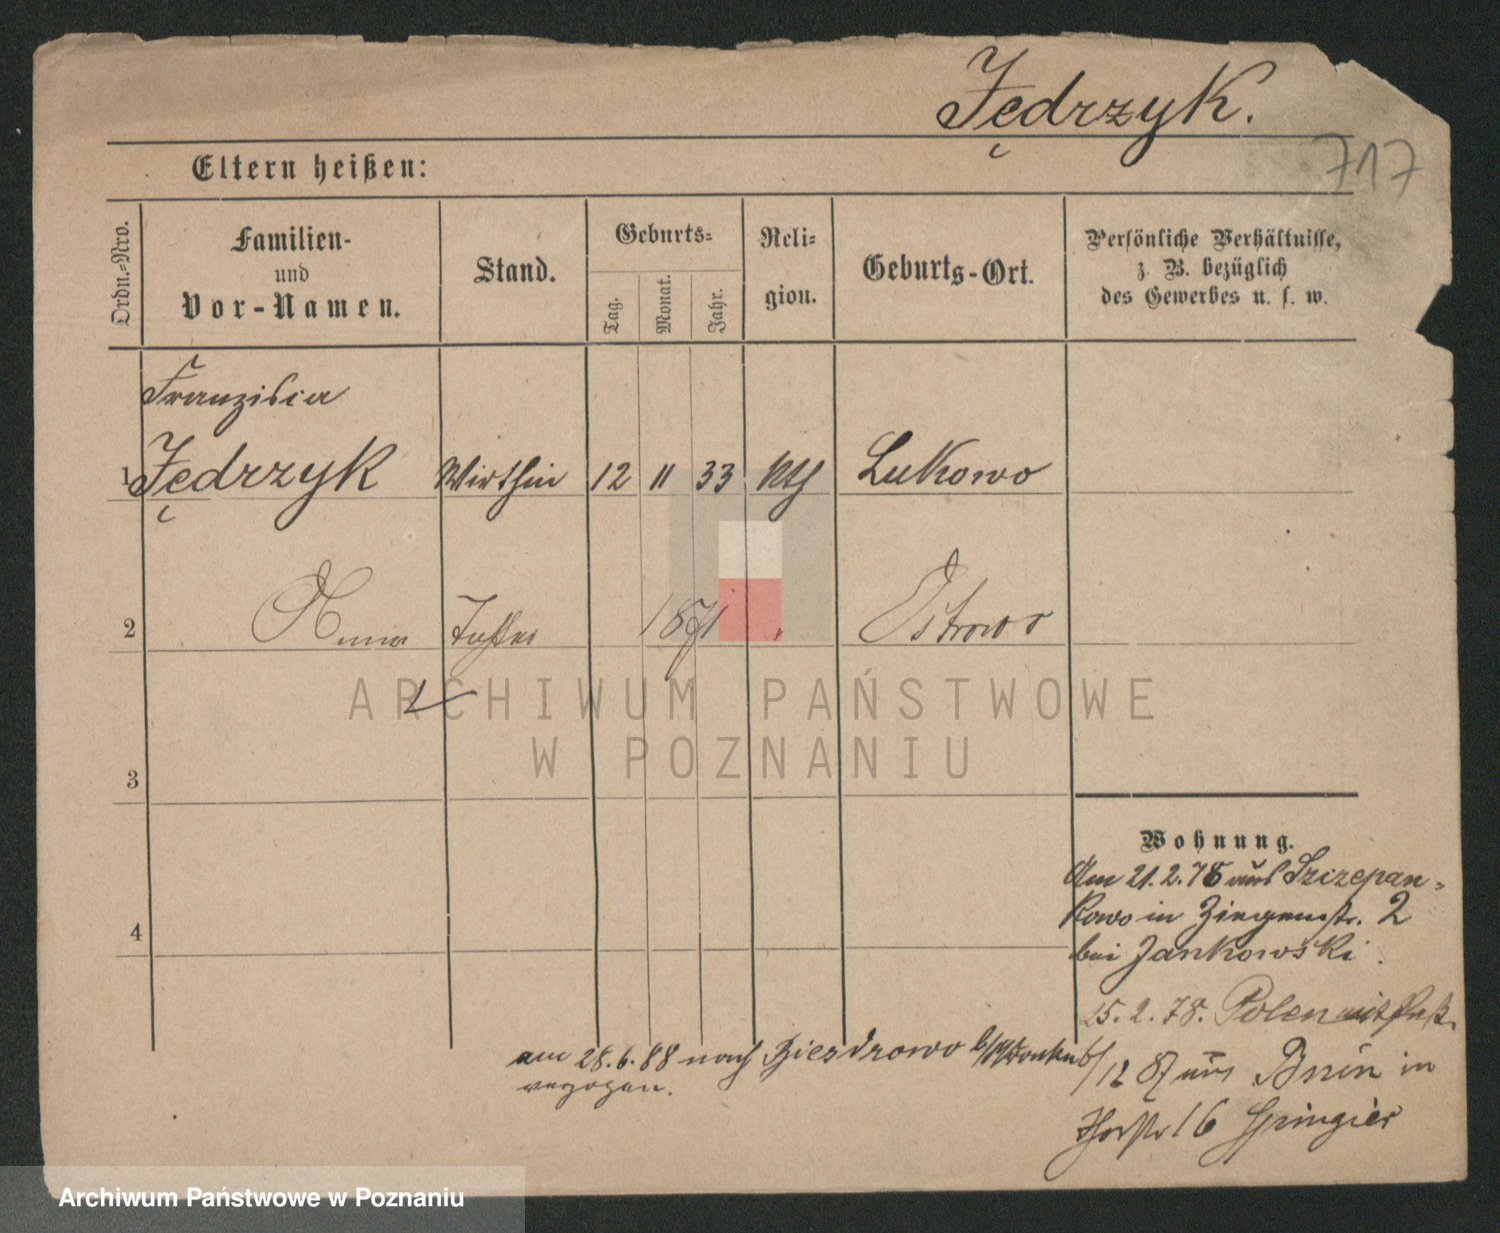 Jędrzyk.
717
Eltern heißen:
Ordn.-Nro.
Familien-
und
Vor-Namen.
Stand.
Geburts-
Tag.
Monat.
Jahr.
Reli-
gion.
Geburts-Ort.
Persönliche Verhältnisse,
z. B. bezüglich
des Gewerbes u. s. w.
Franziska
1 Jędrzyk Wirthin 12 11 33 kth Lukowo
2 Anna Tochter 1871 " Ostrowo
3
4
ARCHIWUM PAŃSTWOWE
W POZNANIU
Wohnung.
Am 21.2.78 aus Szczepan-
kowo in Ziegenstr. 2
bei Jankowski.
25.2.78. Polen mit Paß.
6/12 87 aus Bnin in
16
am 28.6.88 nach
verzogen.
Archiwum Państwowe w Poznaniu